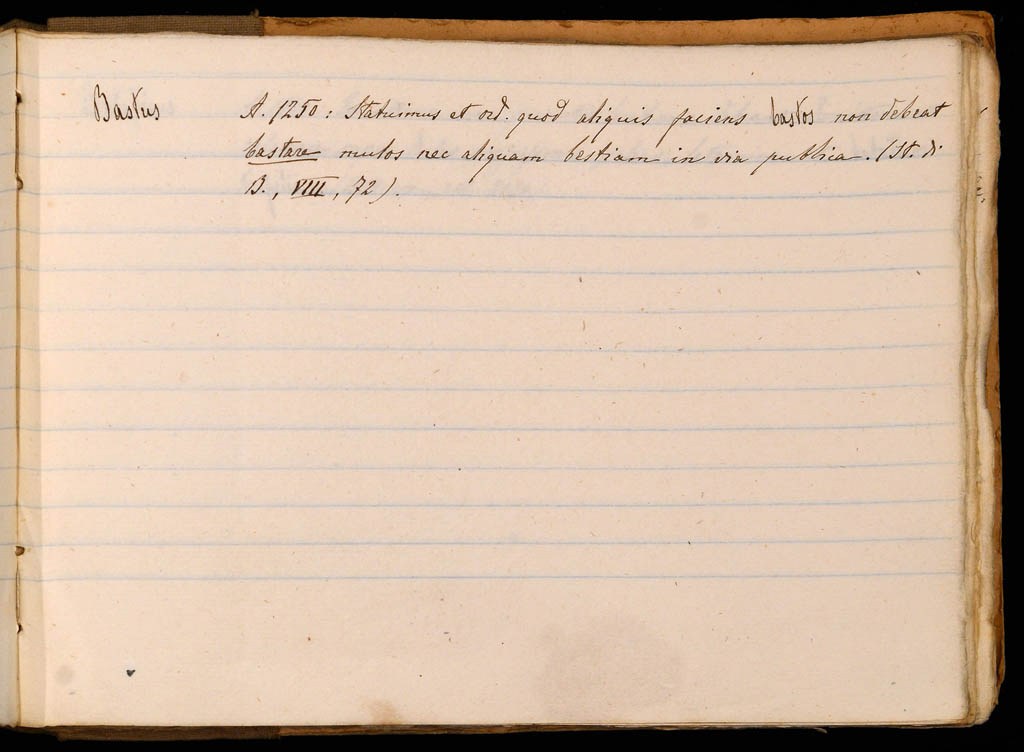 Bastus A. 1250: Statuimus et ord. quod aliquis faciens bastos non debeat
bastare mulos nec aliquam bestiam in via publica. (St. di
B., VIII, 72).